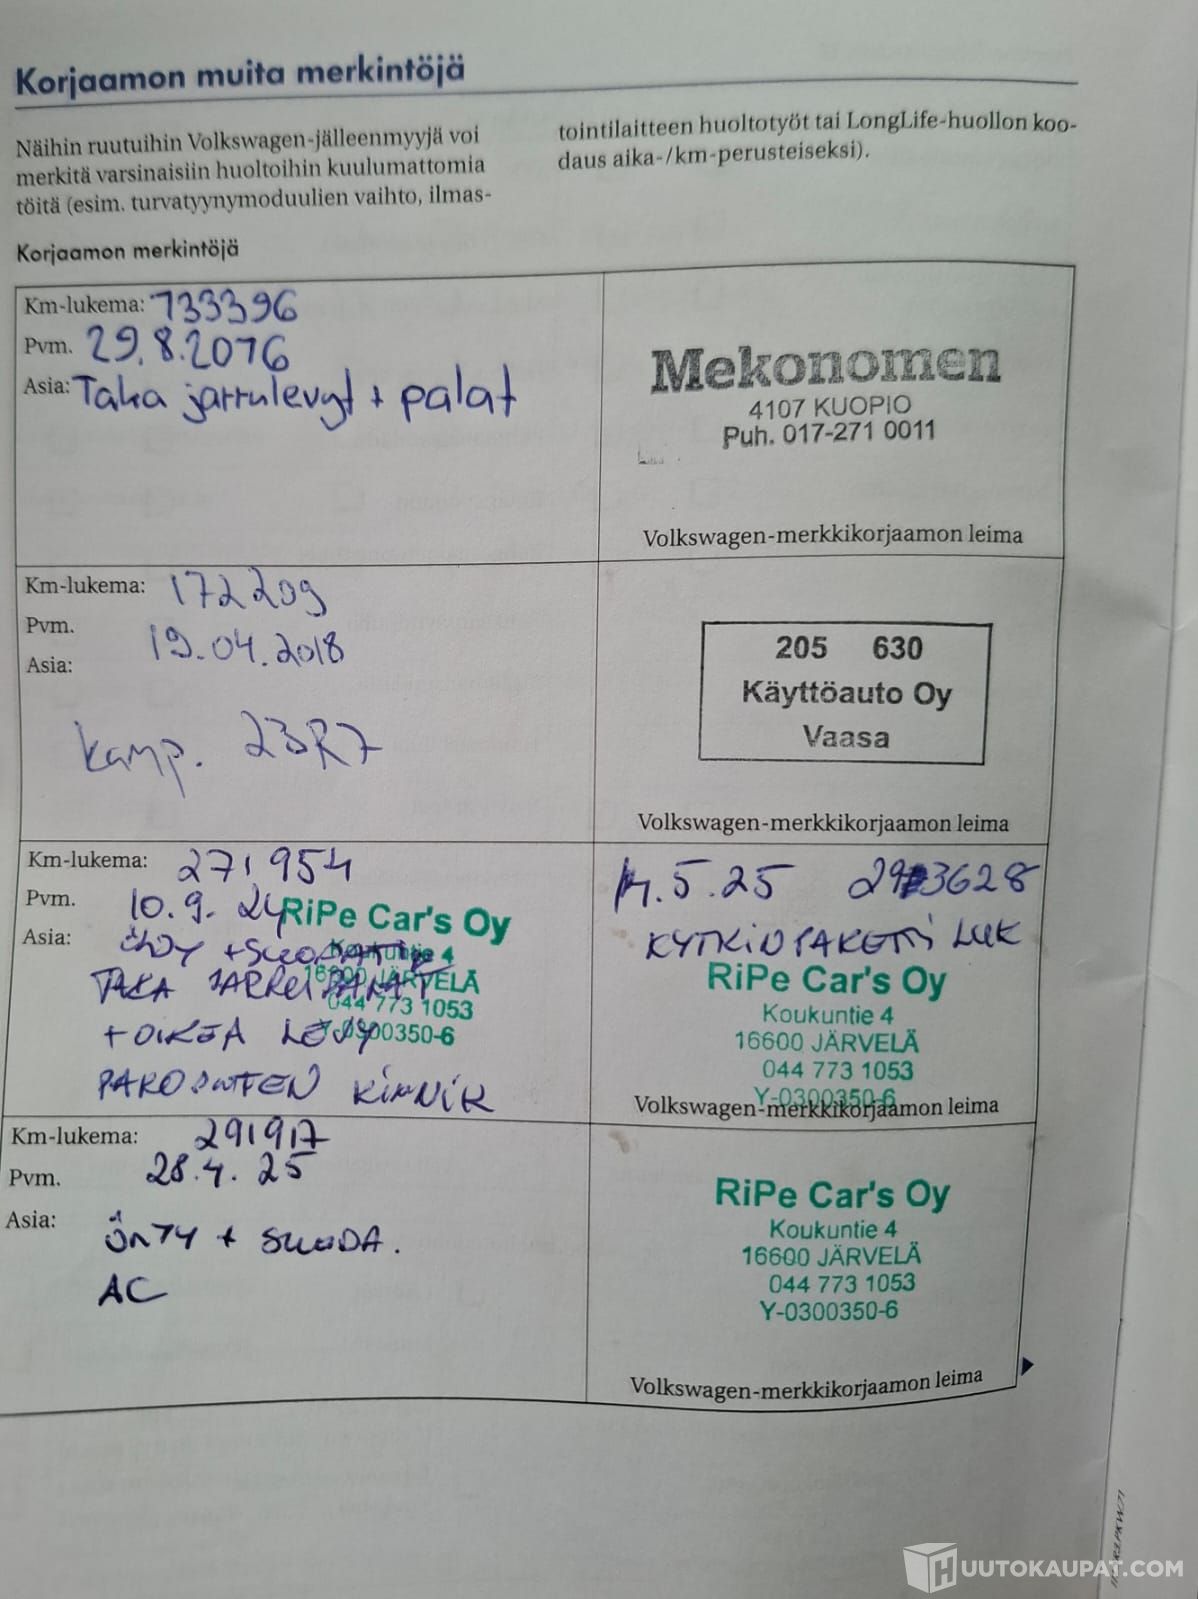 Korjaamon muita merkintöjä
Näihin ruutuihin Volkswagen-jälleenmyyjä voi
merkitä varsinaisiin huoltoihin kuulumattomia
töitä (esim. turvatyynymoduulien vaihto, ilmas-
tointilaitteen huoltotyöt tai LongLife-huollon koo-
daus aika-/km-perusteiseksi).
Korjaamon merkintöjä
Km-lukema: 133396
Pvm. 29.8.2016
Asia: Taka jarrulevyt + palat
Mekonomen
4107 KUOPIO
Puh. 017-271 0011
Volkswagen-merkkikorjaamon leima
Km-lukema: 172209
Pvm. 19.04.2018
Asia:
kamp. 23R7
205 630
Käyttöauto Oy
Vaasa
Volkswagen-merkkikorjaamon leima
Km-lukema: 271954
Pvm. 10.9.24
Asia:
TAKA JARRUPALAT
+ OIKEA LEVY
RiPe Car's Oy
Koukuntie 4
16600 JÄRVELÄ
044 773 1053
Y-0300350-6
.5.25
KYTKINPAKETTI
RiPe Car's Oy
Koukuntie 4
16600 JÄRVELÄ
044 773 1053
Y-0300350-6
Volkswagen-merkkikorjaamon leima
Km-lukema: 291917
Pvm. 28.4.25
Asia:
+ SUODA.
AC
RiPe Car's Oy
Koukuntie 4
16600 JÄRVELÄ
044 773 1053
Y-0300350-6
Volkswagen-merkkikorjaamon leima
HUUTOKAUPAT.COM